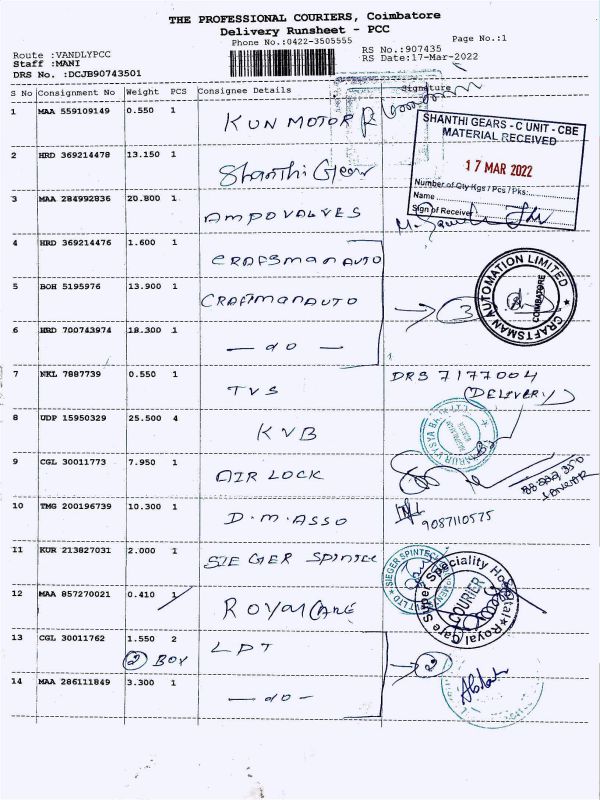 THE PROFESSIONAL COURIERS, Coimbatore
Delivery Runsheet - PCC
Phone No.:0422-3505555
Page No.:1
Route :VANDLYPCC
Staff :MANI
DRS No. :DCJB90743501
RS No.:907435
RS Date:17-Mar-2022
S No Consignment No Weight PCS Consignee Details Signature
1 MAA 559109149 0.550 1 KUN MOTOR
SHANTHI GEARS - C UNIT - CBE
MATERIAL RECEIVED
17 MAR 2022
Number of Qty Kgs / Pcs / Pks:
Name
Sign of Receiver
2 HRD 369214478 13.150 1 Shanthi Gear
3 MAA 284992836 20.800 1 AMPOVALVES
4 HRD 369214476 1.600 1 CRAFSMAN AUTO
5 BOH 5195976 13.900 1 CRAFTMANAUTO
3
CRAFTSMAN AUTOMATION LIMITED
COIMBATORE
6 HRD 700743974 18.300 1 — do —
7 NKL 7887739 0.550 1 TVS
DRS 7177004
(DELIVERY)
8 UDP 15950329 25.500 4 KVB
9 CGL 30011773 7.950 1 AIR LOCK
10 TMG 200196739 10.300 1 D.M.ASSO
9087110575
11 KUR 213827031 2.000 1 SIEGER SPINTEC
SIEGER SPINTECH
12 MAA 857270021 0.410 1 ROYAL CARE
Royal Care Super Speciality Hospital
COURIER
13 CGL 30011762 1.550 2 LPT
2 BOX
2
14 MAA 286111849 3.300 1 — do —